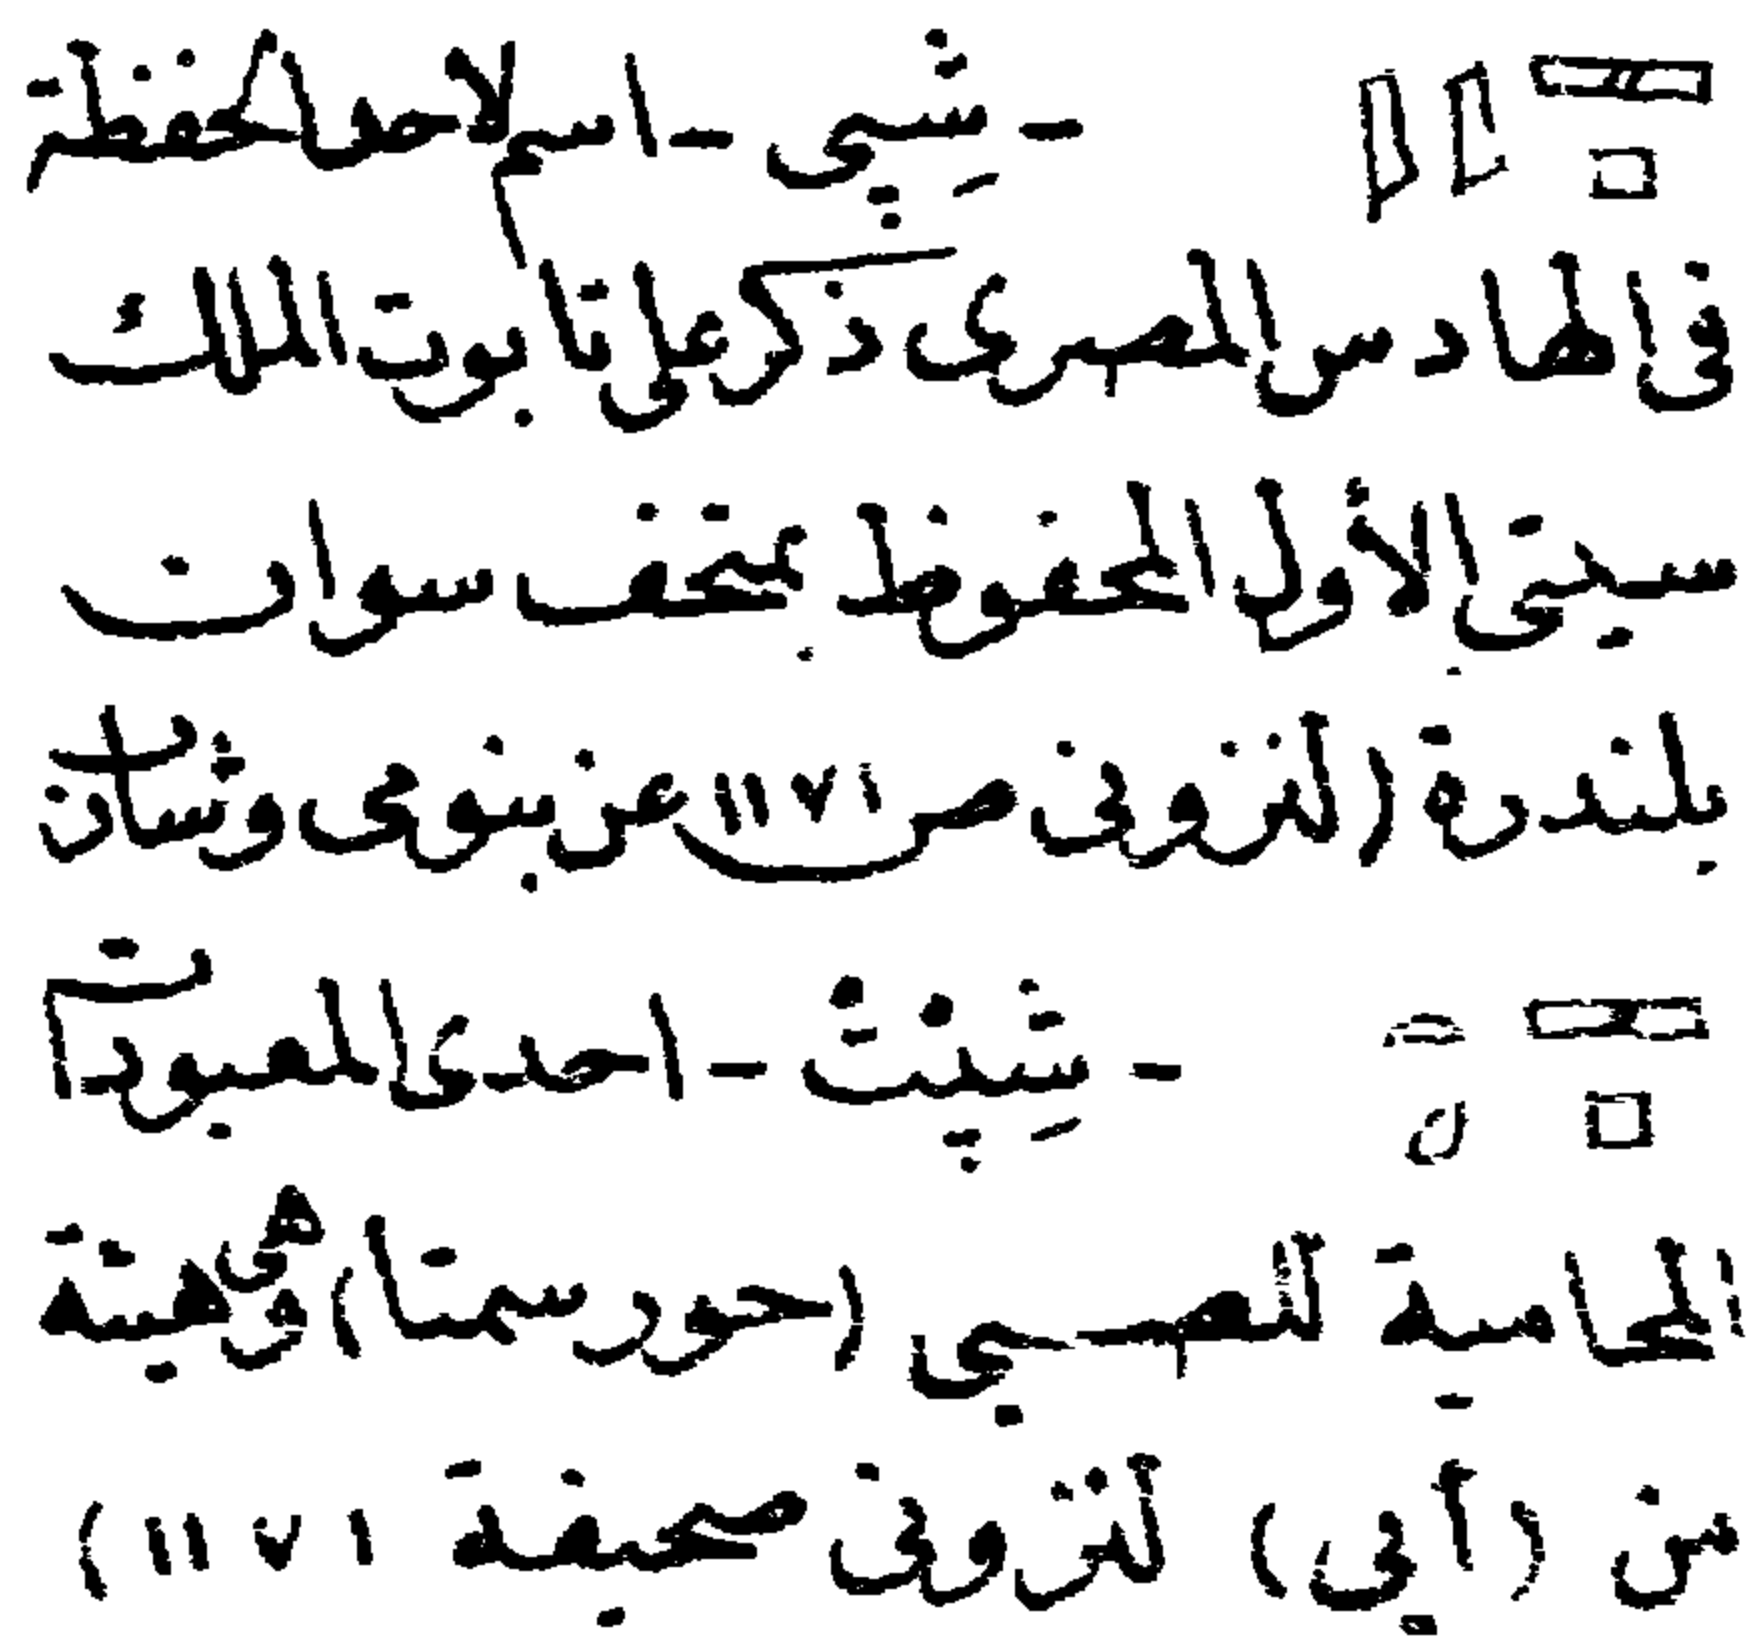 - شِپى - اسم لاحد الحفظة
فى الهادس المصرى ذكر على تابوت الملك
سيتى الأول المحفوظ بمتحف سوان
بلندرة (لنزونى ص ١١٧١ عن بنومى وشارب
- شِپنْت - احدى المعبودات
المحامية للصبى (حور سمتا) وهى هبة
من (أپى) لنزونى صحيفة ١١٧١)